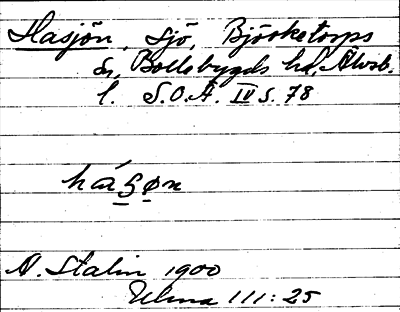 Hasjön, sjö, Björketorps
sn, Bollebygds hd, Älvsb.
l. S.O.Ä. IV s. 78
hásøn
A. Stalin 1900
Ulma 111:25